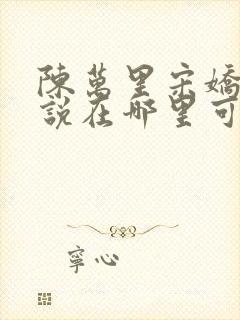 陳萬里宋嬌
說在哪里可
寧心